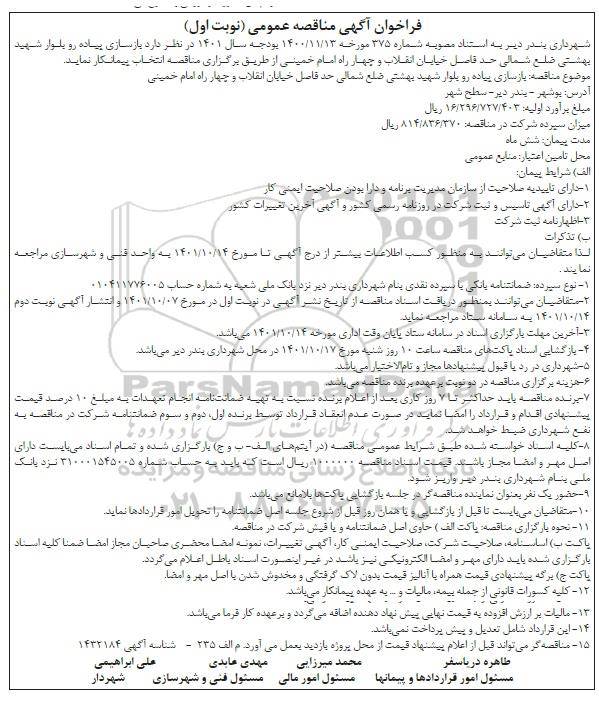 فراخوان آگهی مناقصه عمومی (نوبت اول)
شهرداری بندر دیر به استناد مصوبه شماره ۳۷۵ مورخه ۱۴۰۰/۱۱/۱۳ بودجه سال ۱۴۰۱ در نظر دارد بازسازی پیاده رو بلوار شهید
بهشتی ضلع شمالی حد فاصل خیابان انقلاب و چهار راه امام خمینی از طریق برگزاری مناقصه انتخاب پیمانکار نماید.
موضوع مناقصه: بازسازی پیاده رو بلوار شهید بهشتی ضلع شمالی حد فاصل خیابان انقلاب و چهار راه امام خمینی
آدرس: بوشهر - بندر دیر- سطح شهر
مبلغ برآورد اولیه: ۱۶/۲۹۶/۷۲۷/۴۰۳ ریال
میزان سپرده شرکت در مناقصه: ۸۱۴/۸۳۶/۳۷۰ ریال
مدت پیمان: شش ماه
محل تامین اعتبار: منابع عمومی
الف) شرایط پیمان:
۱-دارای تاییدیه صلاحیت از سازمان مدیریت برنامه و دارا بودن صلاحیت ایمنی کار
۲-دارای آگهی تاسیس و ثبت شرکت در روزنامه رسمی کشور و آگهی آخرین تغییرات کشور
۳-اظهارنامه ثبت شرکت
ب) تذکرات
لذا متقاضیان می‌توانند به منظور کسب اطلاعات بیشتر از درج آگهی تا مورخ ۱۴۰۱/۱۰/۱۴ به واحد فنی و شهرسازی مراجعه
نمایند.
۱- نوع سپرده: ضمانتنامه بانکی یا سپرده نقدی بنام شهرداری بندر دیر نزد بانک ملی شعبه به شماره حساب ۰۱۰۴۱۱۷۷۶۰۰۵
۲-متقاضیان می‌توانند بمنظور دریافت اسناد مناقصه از تاریخ نشر آگهی در نوبت اول در مورخ ۱۴۰۱/۱۰/۰۷ و انتشار آگهی نوبت دوم
۱۴۰۱/۱۰/۱۴ به سامانه ستاد مراجعه نماید.
۳-آخرین مهلت بارگزاری اسناد در سامانه ستاد پایان وقت اداری مورخه ۱۴۰۱/۱۰/۱۴ می‌باشد.
۴- بازگشایی اسناد پاکت‌های مناقصه ساعت ۱۰ روز شنبه مورخ ۱۴۰۱/۱۰/۱۷ در محل شهرداری بندر دیر می‌باشد.
۵-شهرداری در رد یا قبول پیشنهادها مجاز و تام‌الاختیار می‌باشد.
۶-هزینه برگزاری مناقصه در دو نوبت برعهده برنده مناقصه می‌باشد.
۷-برنده مناقصه باید حداکثر تا ۷ روز کاری بعد از اعلام برنده نسبت به تهیه ضمانت‌نامه انجام تعهدات به مبلغ ۱۰ درصد قیمت
پیشنهادی اقدام و قرارداد را امضا نماید در صورت عدم انعقاد قرارداد توسط برنده اول، دوم و سوم ضمانتنامه شرکت در مناقصه به
نفع شهرداری ضبط خواهد شد.
۸-کلیه اسناد خواسته شده طبق شرایط عمومی مناقصه (در آیتم‌های الف- ب و ج) بارگزاری شده و تمام اسناد می‌بایست دارای
اصل مهر و امضا مجاز باشند. قیمت اسناد مناقصه ۱۰۰۰۰۰۰ ریال است که باید به حساب شماره ۳۱۰۰۰۱۵۴۵۰۰۵ نزد بانک
ملی بنام شهرداری بندر دیر واریز شود.
۹-حضور یک نفر بعنوان نماینده مناقصه‌گر در جلسه بازگشایی پاکت‌ها بلامانع می‌باشد.
۱۰-متقاضیان می‌بایست تا قبل از بازگشایی و یا همان روز قبل از شروع جلسه اصل ضمانتنامه را تحویل امور قراردادها نماید.
۱۱- نحوه بارگزاری مناقصه: پاکت الف ) حاوی اصل ضمانتنامه و یا فیش شرکت در مناقصه.
پاکت ب) اساسنامه، صلاحیت شرکت، صلاحیت ایمنی کار، آگهی تغییرات، نمونه امضا محضری صاحیان مجاز امضا ضمنا کلیه اسناد
بارگزاری شده باید دارای مهر و امضا الکترونیکی نیز باشد در غیر اینصورت اسناد باطل اعلام می‌گردد.
پاکت ج) برگه پیشنهادی قیمت همراه با آنالیز قیمت بدون لاک گرفتگی و مخدوش شدن با اصل مهر و امضا.
۱۲- کلیه کسورات قانونی از جمله بیمه، مالیات و ... به عهده پیمانکار می‌باشد.
۱۳- مالیات بر ارزش افزوده به قیمت نهایی پیش نهاد دهنده اضافه می‌گردد و برعهده کار فرما می‌باشد.
۱۴-این قرارداد شامل تعدیل و پیش پرداخت نمی‌باشد.
۱۵-مناقصه‌گر می‌تواند قبل از اعلام پیشنهاد قیمت از محل پروژه بازدید بعمل می آورد. م الف ۲۳۵ - شناسه آگهی ۱۴۳۲۱۸۴
طاهره دریاسفر محمد میرزایی مهدی عابدی علی ابراهیمی
مسئول امور قراردادها و پیمانها مسئول امور مالی مسئول فنی و شهرسازی شهردار